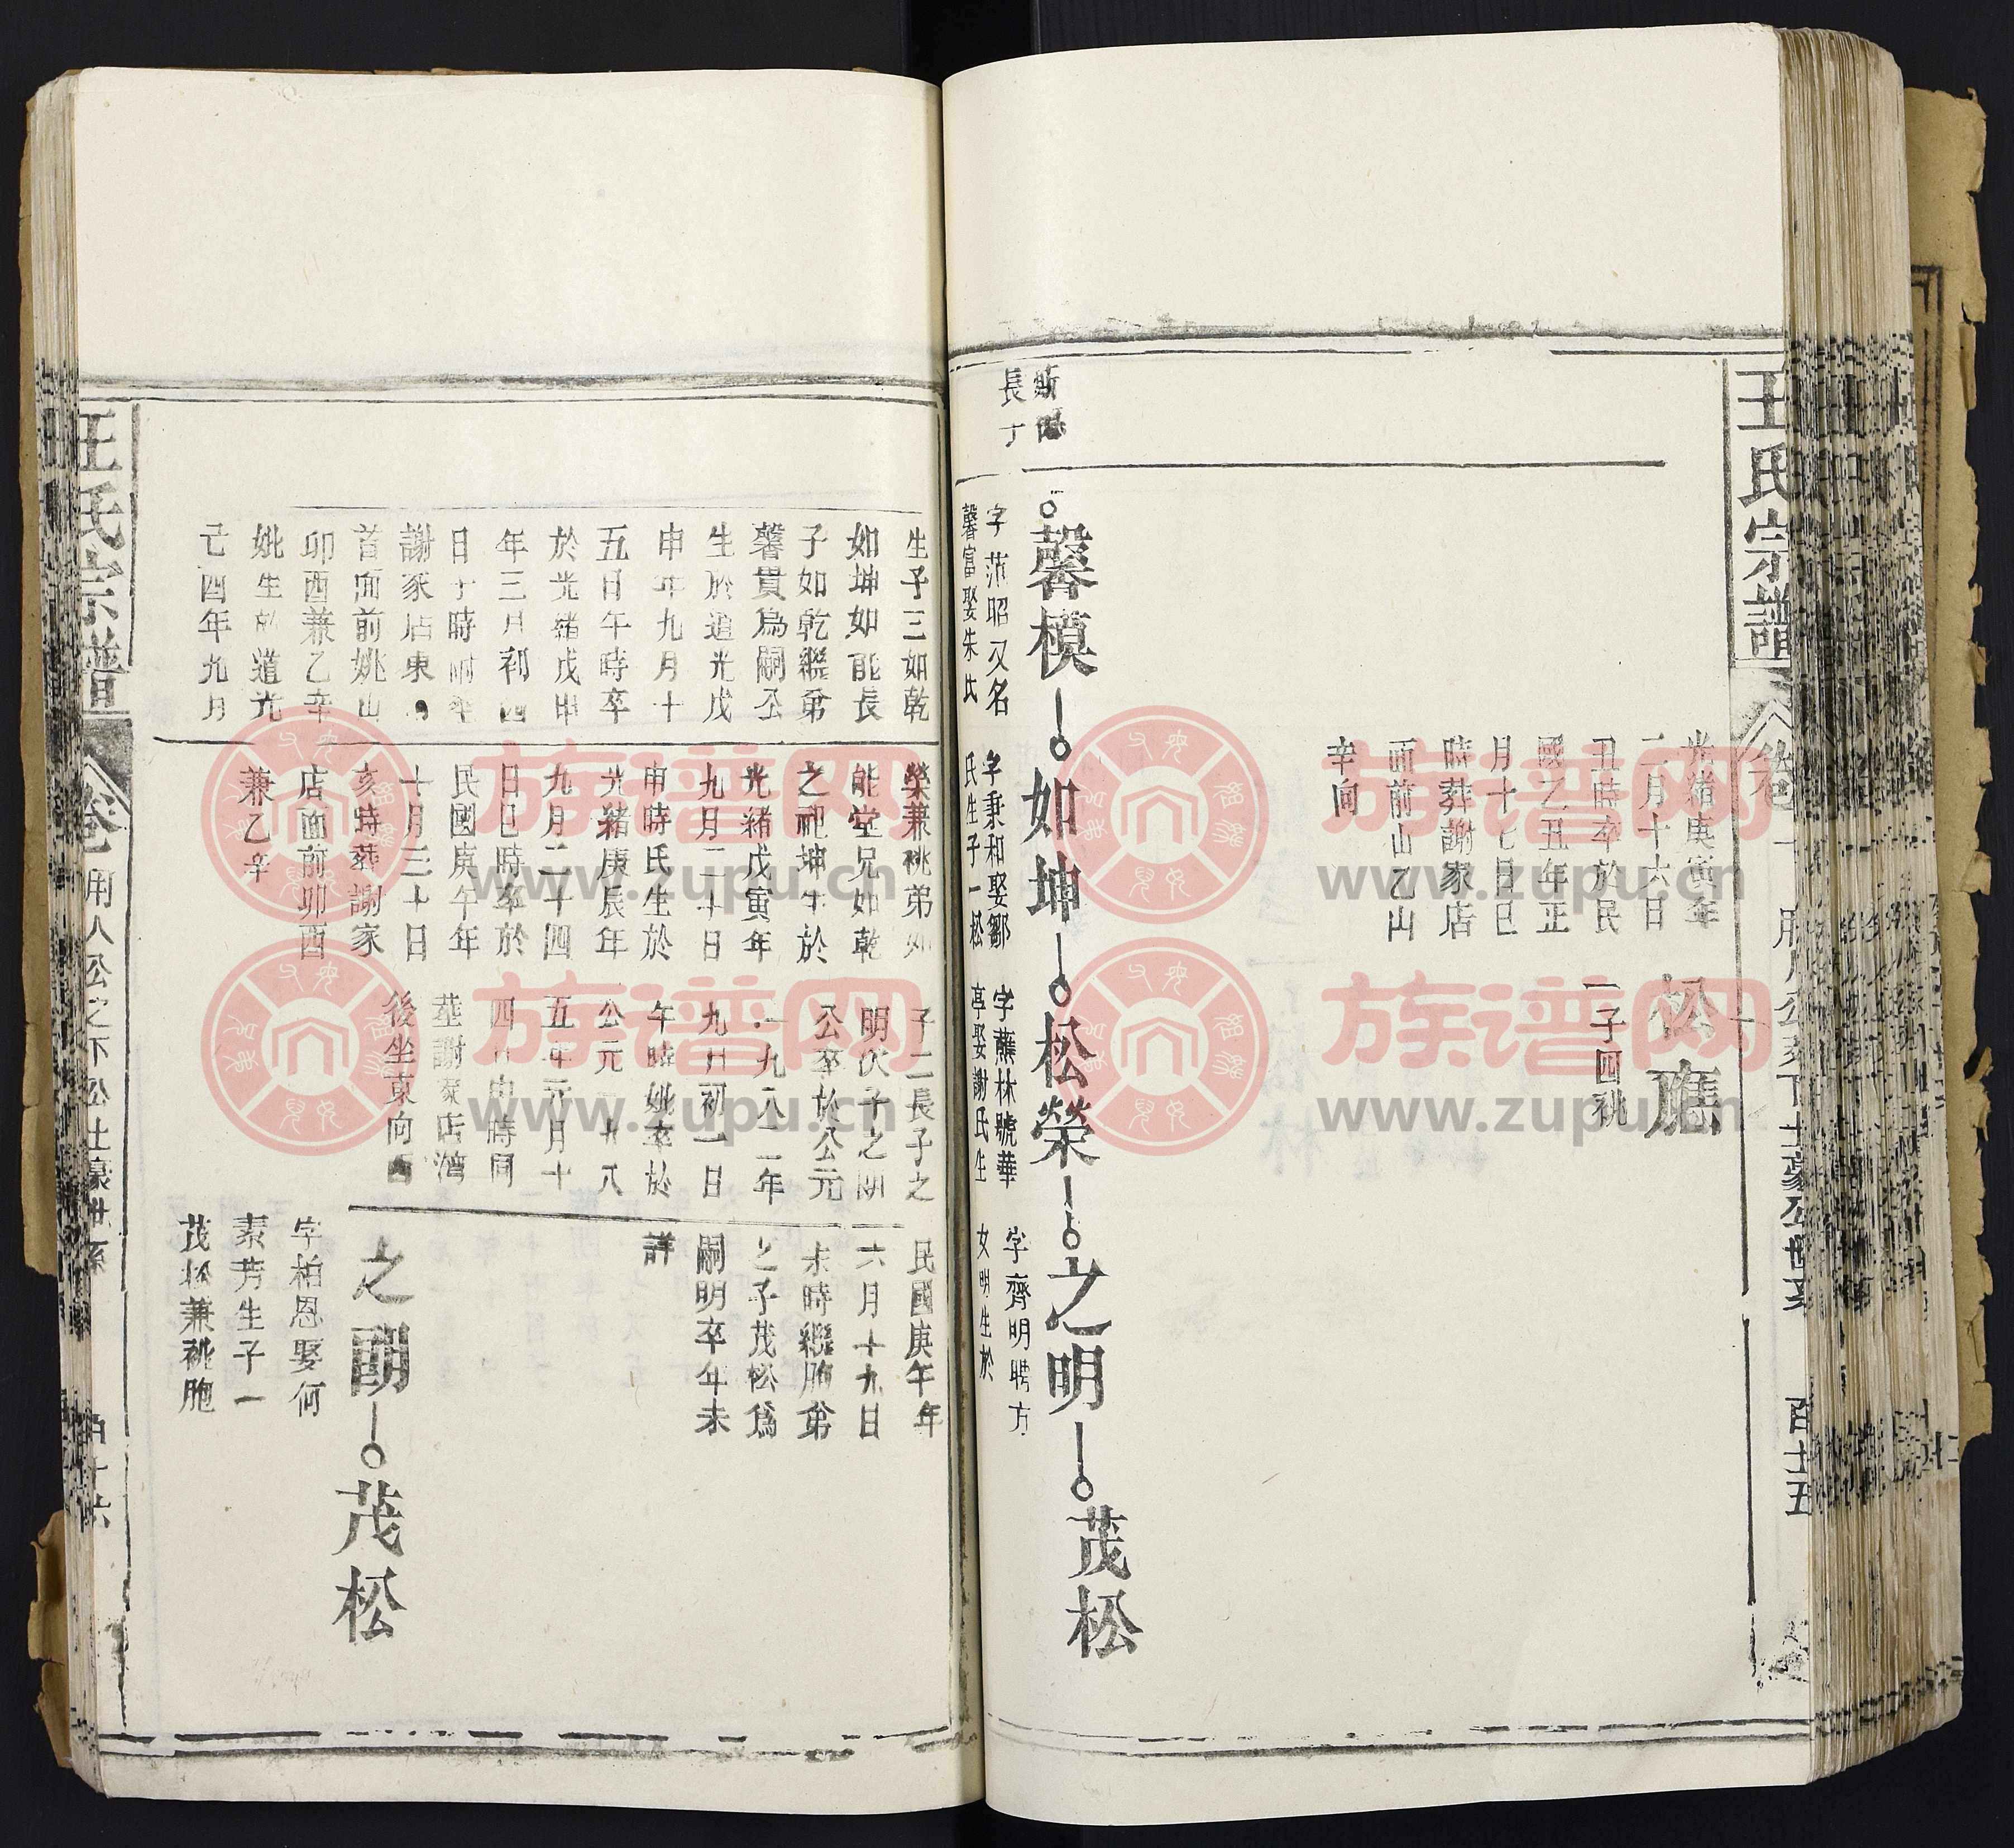 王氏宗譜
卷
百十五
光緒庚寅年
二月十六日
丑時卒於民
國乙丑年正
月十七日巳
時葬謝家店
面前山乙山
辛向
松應
一子四祧
長丁
馨模
如坤
松榮
之明
茂松
字範昭又名
馨富娶朱氏
字秉和娶鄒
氏生子一松
字蘇林號華
亭娶謝氏生
字齊明聘方
女明生於
生子三如乾
如坤如能長
子如乾繼弟
馨貫為嗣公
生於道光戊
申年九月十
五日午時卒
於光緒戊申
年三月初四
日子時
謝家店東
首面前姚山
卯酉兼乙辛
妣生於道光
己酉年九月
榮兼祧弟如
能堂兄如乾
之祀坤生於
光緒戊寅年
九月二十日
申時氏生於
光緒庚辰年
九月二十四
日巳時卒於
民國庚午年
十月三十日
亥時葬謝家
店面前卯酉
兼乙辛
子二長子之
明次子之朗
公卒於公元
一九八二年
九月初一日
午時妣卒於
公元一九八
五年元月十
四日申時同
塟謝家店灣
後坐東向西
民國庚午年
六月十九日
未時繼胞弟
之子茂松為
嗣明卒年未
詳
之朗
茂松
字柏恩娶何
素芳生子一
茂松兼祧胞
王氏宗譜
卷
百十六
族谱网
www.zupu.cn
族谱网
www.zupu.cn
族谱网
www.zupu.cn
族谱网
www.zupu.cn